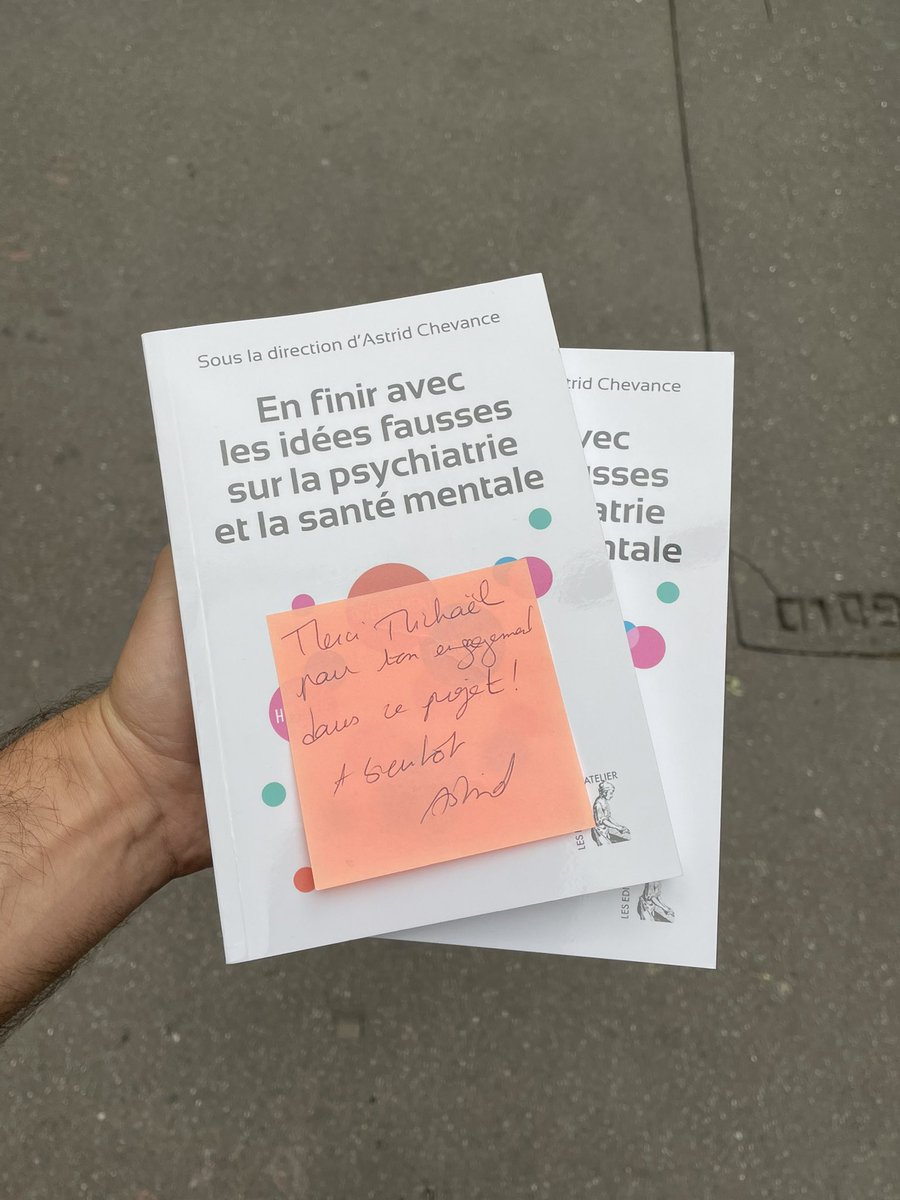 Sous la direction d'Astrid Chevance
En finir avec
les idées fausses
sur la psychiatrie
et la santé mentale
Merci Mickaël
pour ton engagement
dans ce projet !
A bientôt
Astrid
H
ATELIER
LES
trid Chevance
vec
sses
atrie
ntale
LES EDI